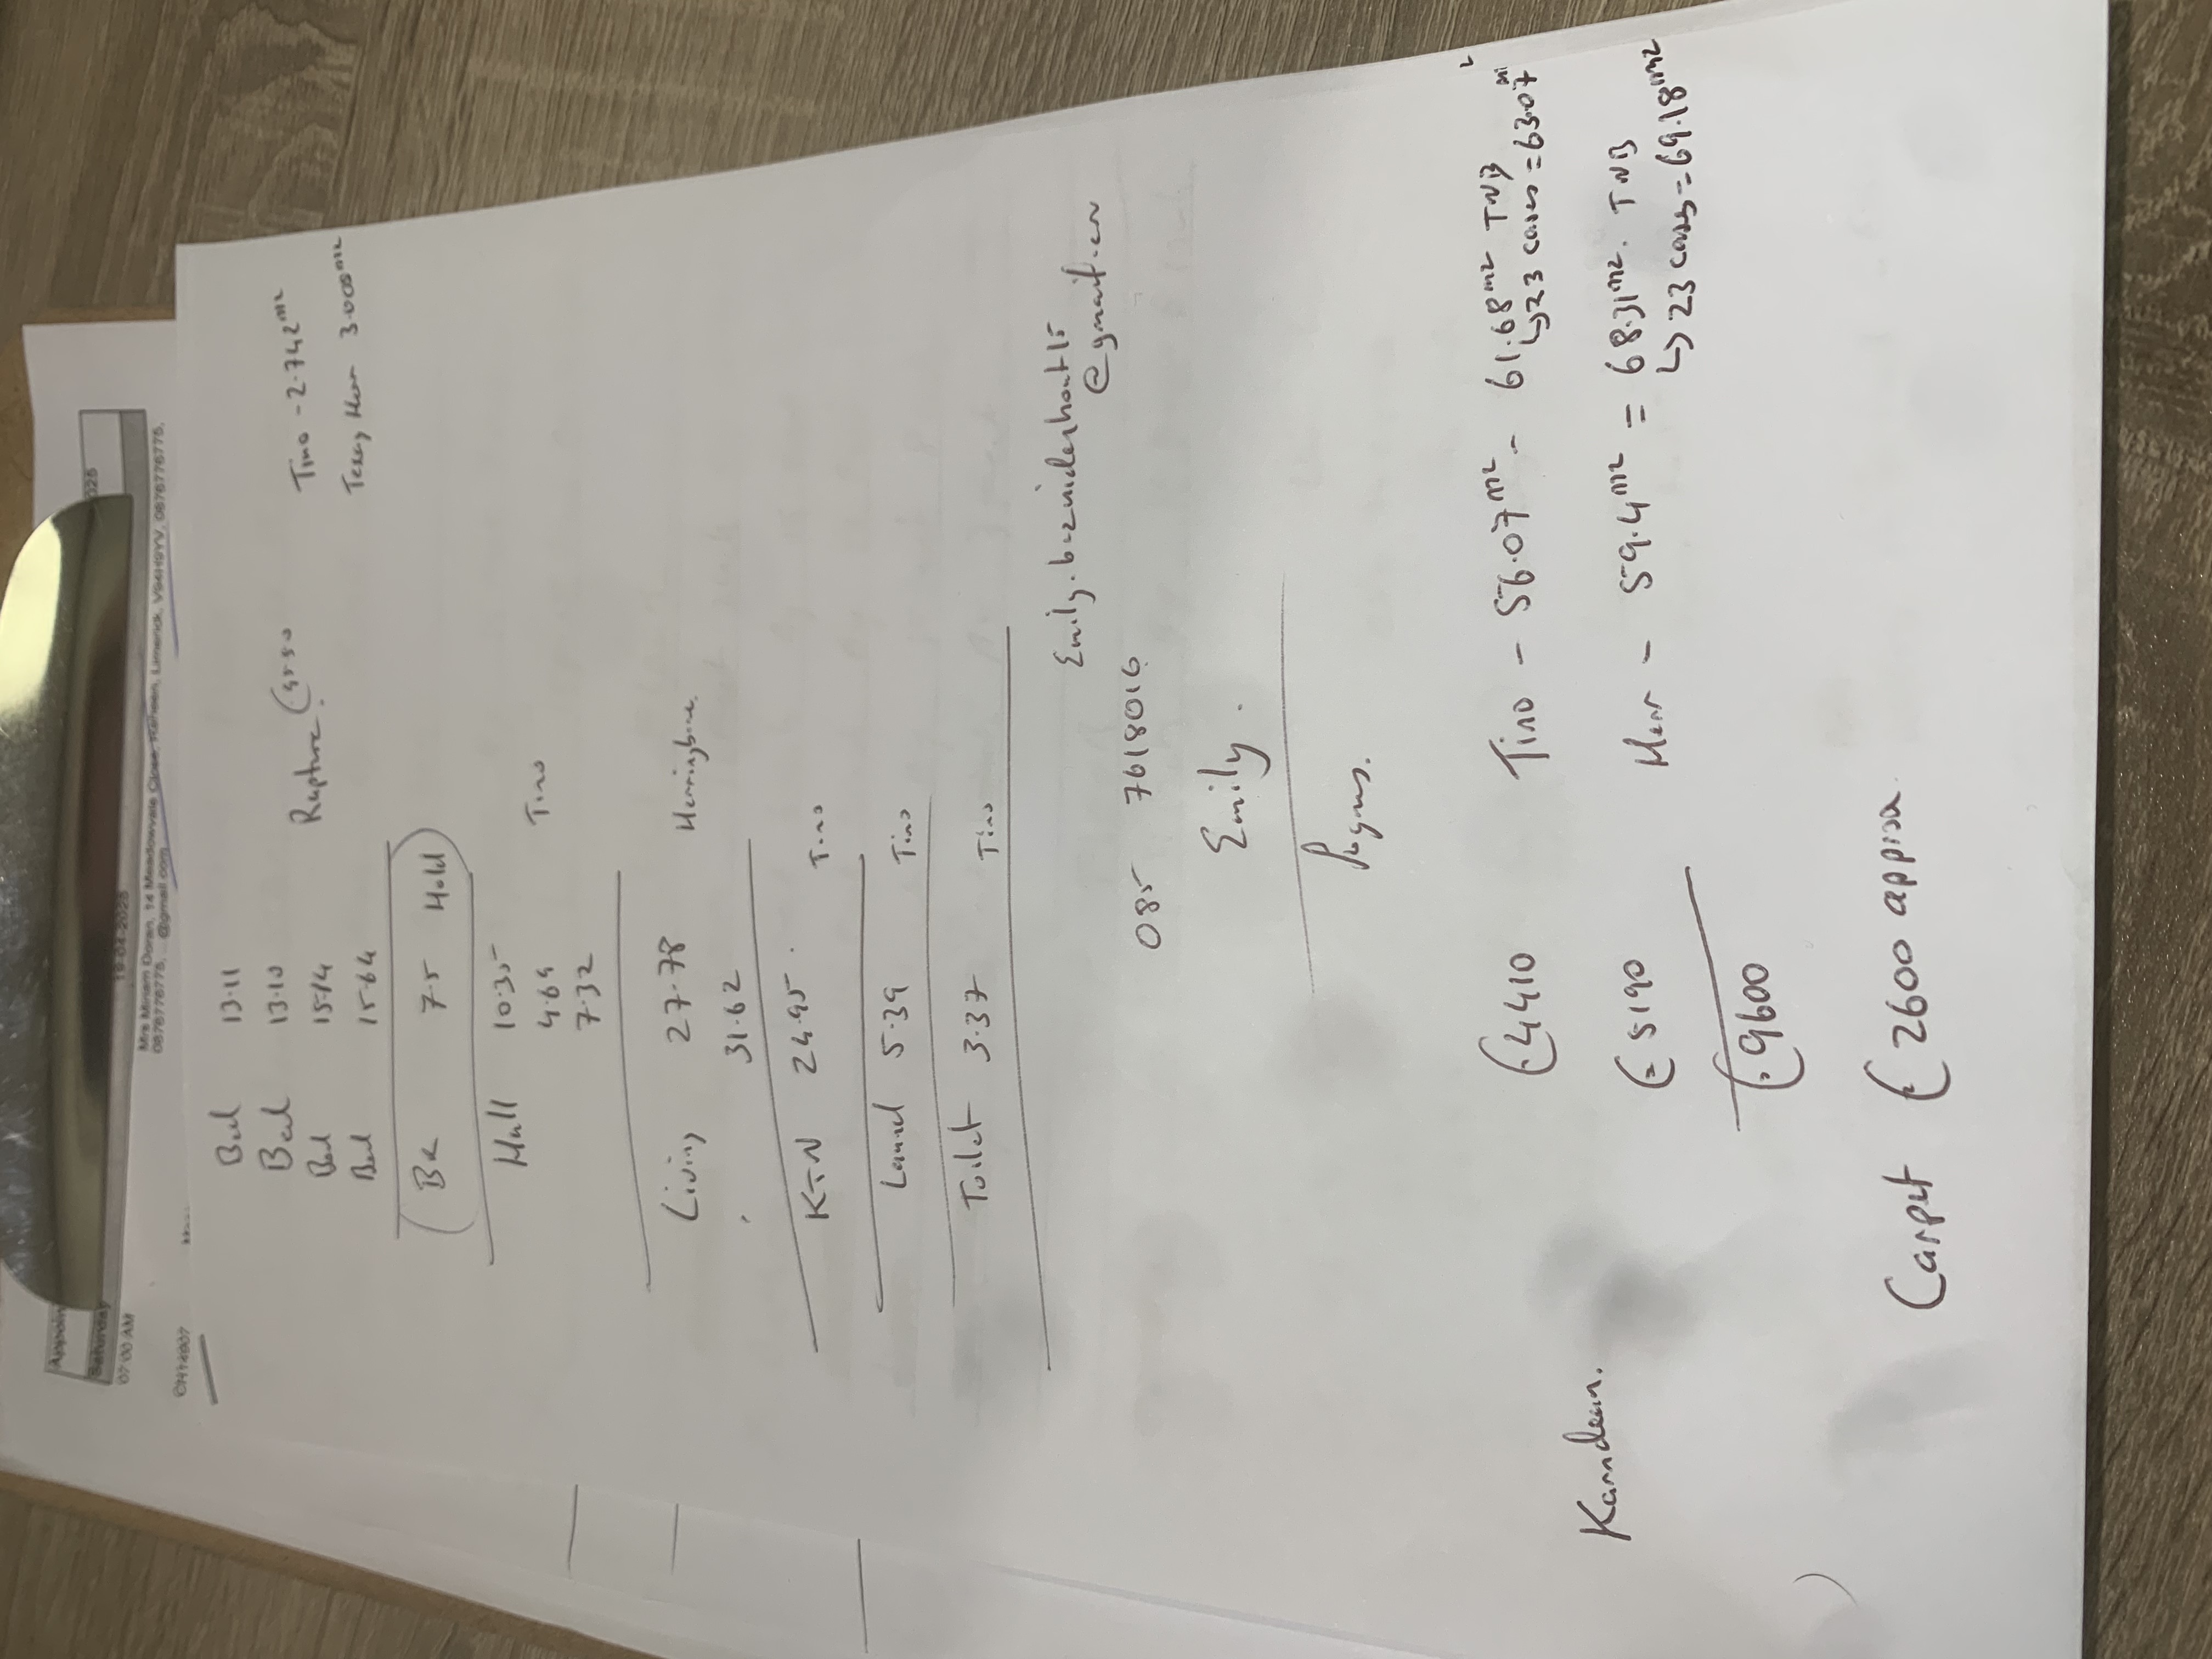 Saturday
07:00 AM
Mrs Miriam Doran, 14 Meadowvale Close, Raheen, Limerick, V94H9YV, 0876776775,
0876776775, @gmail.com
Bed 13.11
Bed 13.10
Bed 15.14
Bed 15.64
Rapture
Tino - 2.742m²
Texas Herr 3.005m²
BR 7.5 Hold
Hall 10.35
4.69
7.32
Tino
Living 27.78
31.62
Herringbone
KTN 24.95. Tino
5.39 Tino
Toilet 3.37 Tino
@gmail.com
085 7618016
Emily.
€4410 Tino - 56.07m² - 61.68m² TNB
↳ 23 cases = 63.07m²
Karndean.
€5190 Herr - 59.4m² = 68.31m². TNB
↳ 23 cases = 69.18m²
€9600
Carpet €2600 approx